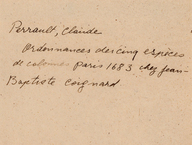 Perrault, Claude
Ordonnances des cinq espèces
de colonnes Paris 1683 chez Jean-
Baptiste Coignard